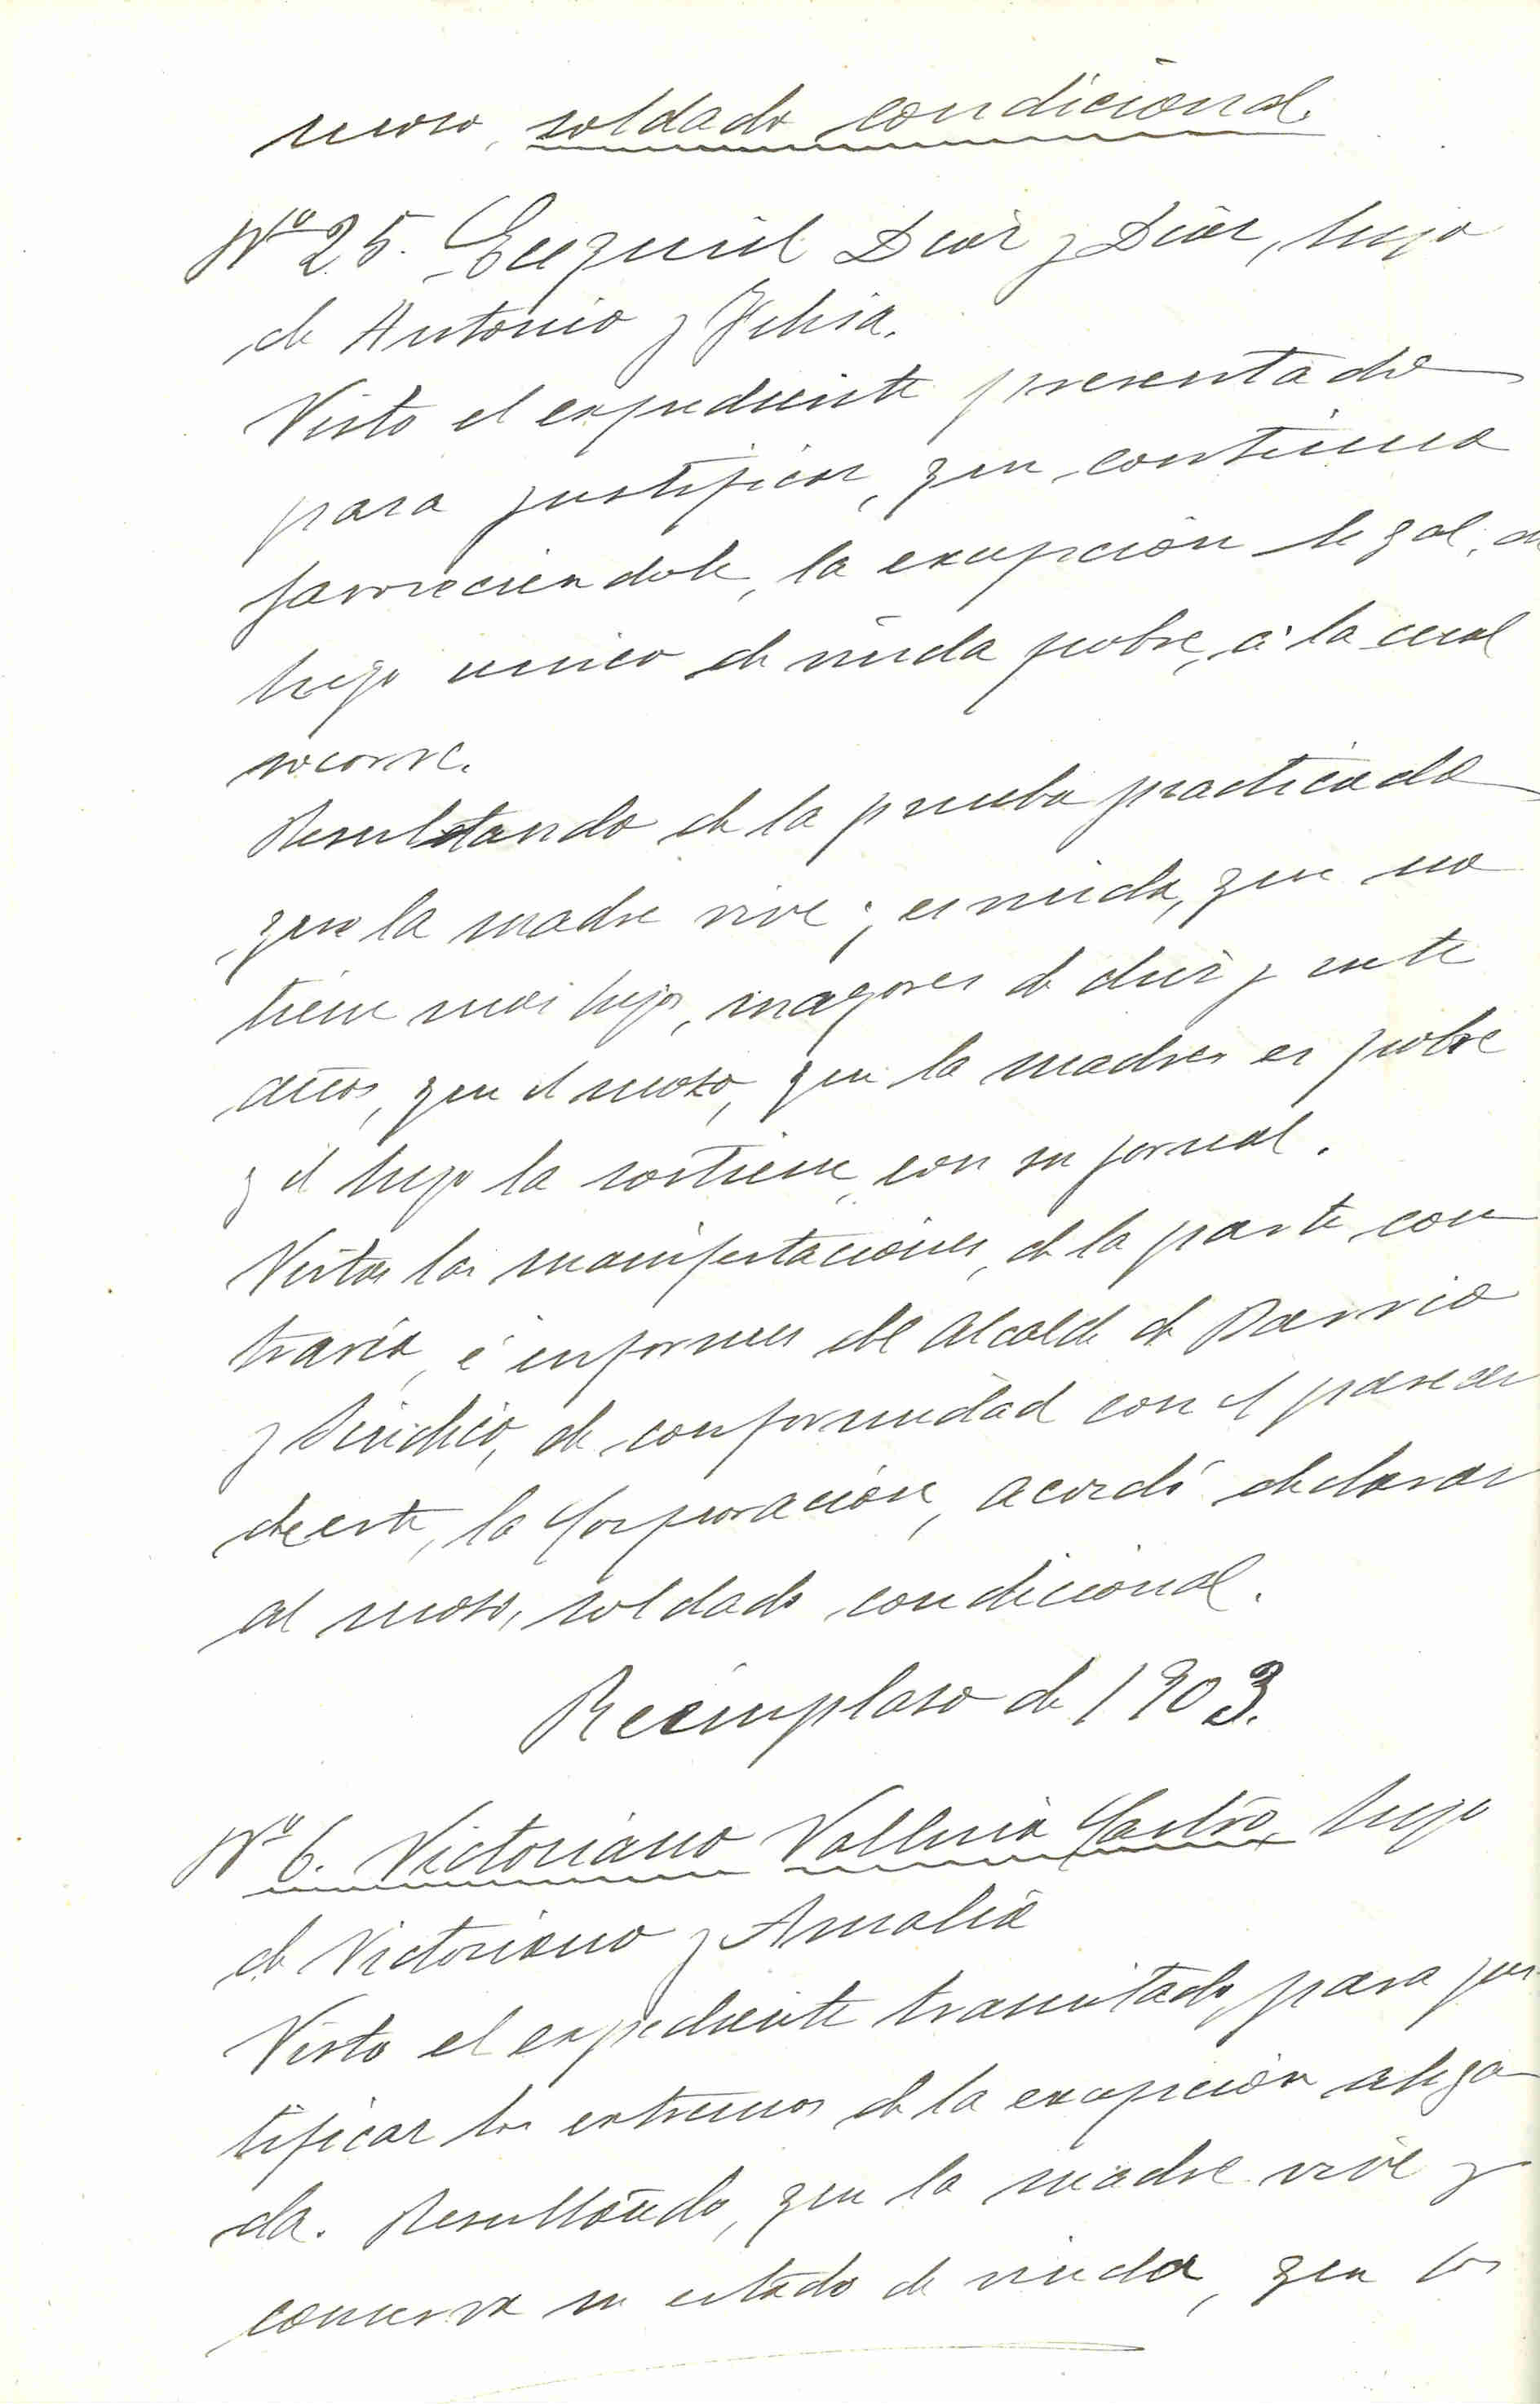 mozo, soldado condicional.
Nº 25. Ecequiel Diaz y Diaz, hijo
de Antonio y Felisa.
Visto el expediente presentado
para justificar, que continua
favoreciendole, la excepción legal, de
hijo unico de viuda pobre, á la cual
socorre.
Resultando de la prueba practicada
que la madre vive y es viuda, que no
tiene mas hijos, mayores de diez y siete
años, que el mozo, que la madre es pobre
y el hijo la sostiene, con su jornal.
Vistas las manifestaciones, de la parte con
traria, é informes del Alcalde de Barrio
y Sindico, de conformidad con el parecer
de este, la Corporación, acordó declarar
al mozo, soldado condicional.
Reemplazo de 1903.
Nº 6. Victoriano Vallina Castro hijo
de Victoriano y Amalia
Visto el expediente tramitado, para jus-
tificar los extremos de la excepción alega
da. Resultando, que la madre vive y
conserva su estado de viuda, que los